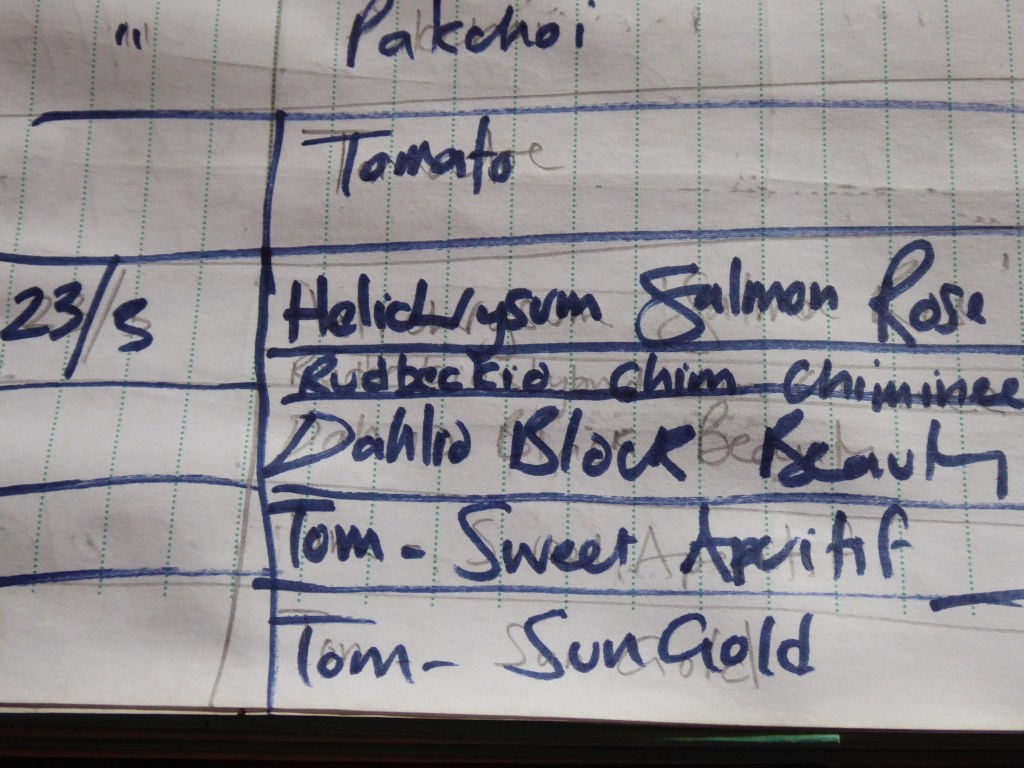 " Pakchoi
Tomato
23/3 Helichrysum Salmon Rose
Rudbeckia chim chiminee
Dahlia Black Beauty
Tom - Sweet Aperitif
Tom - SunGold